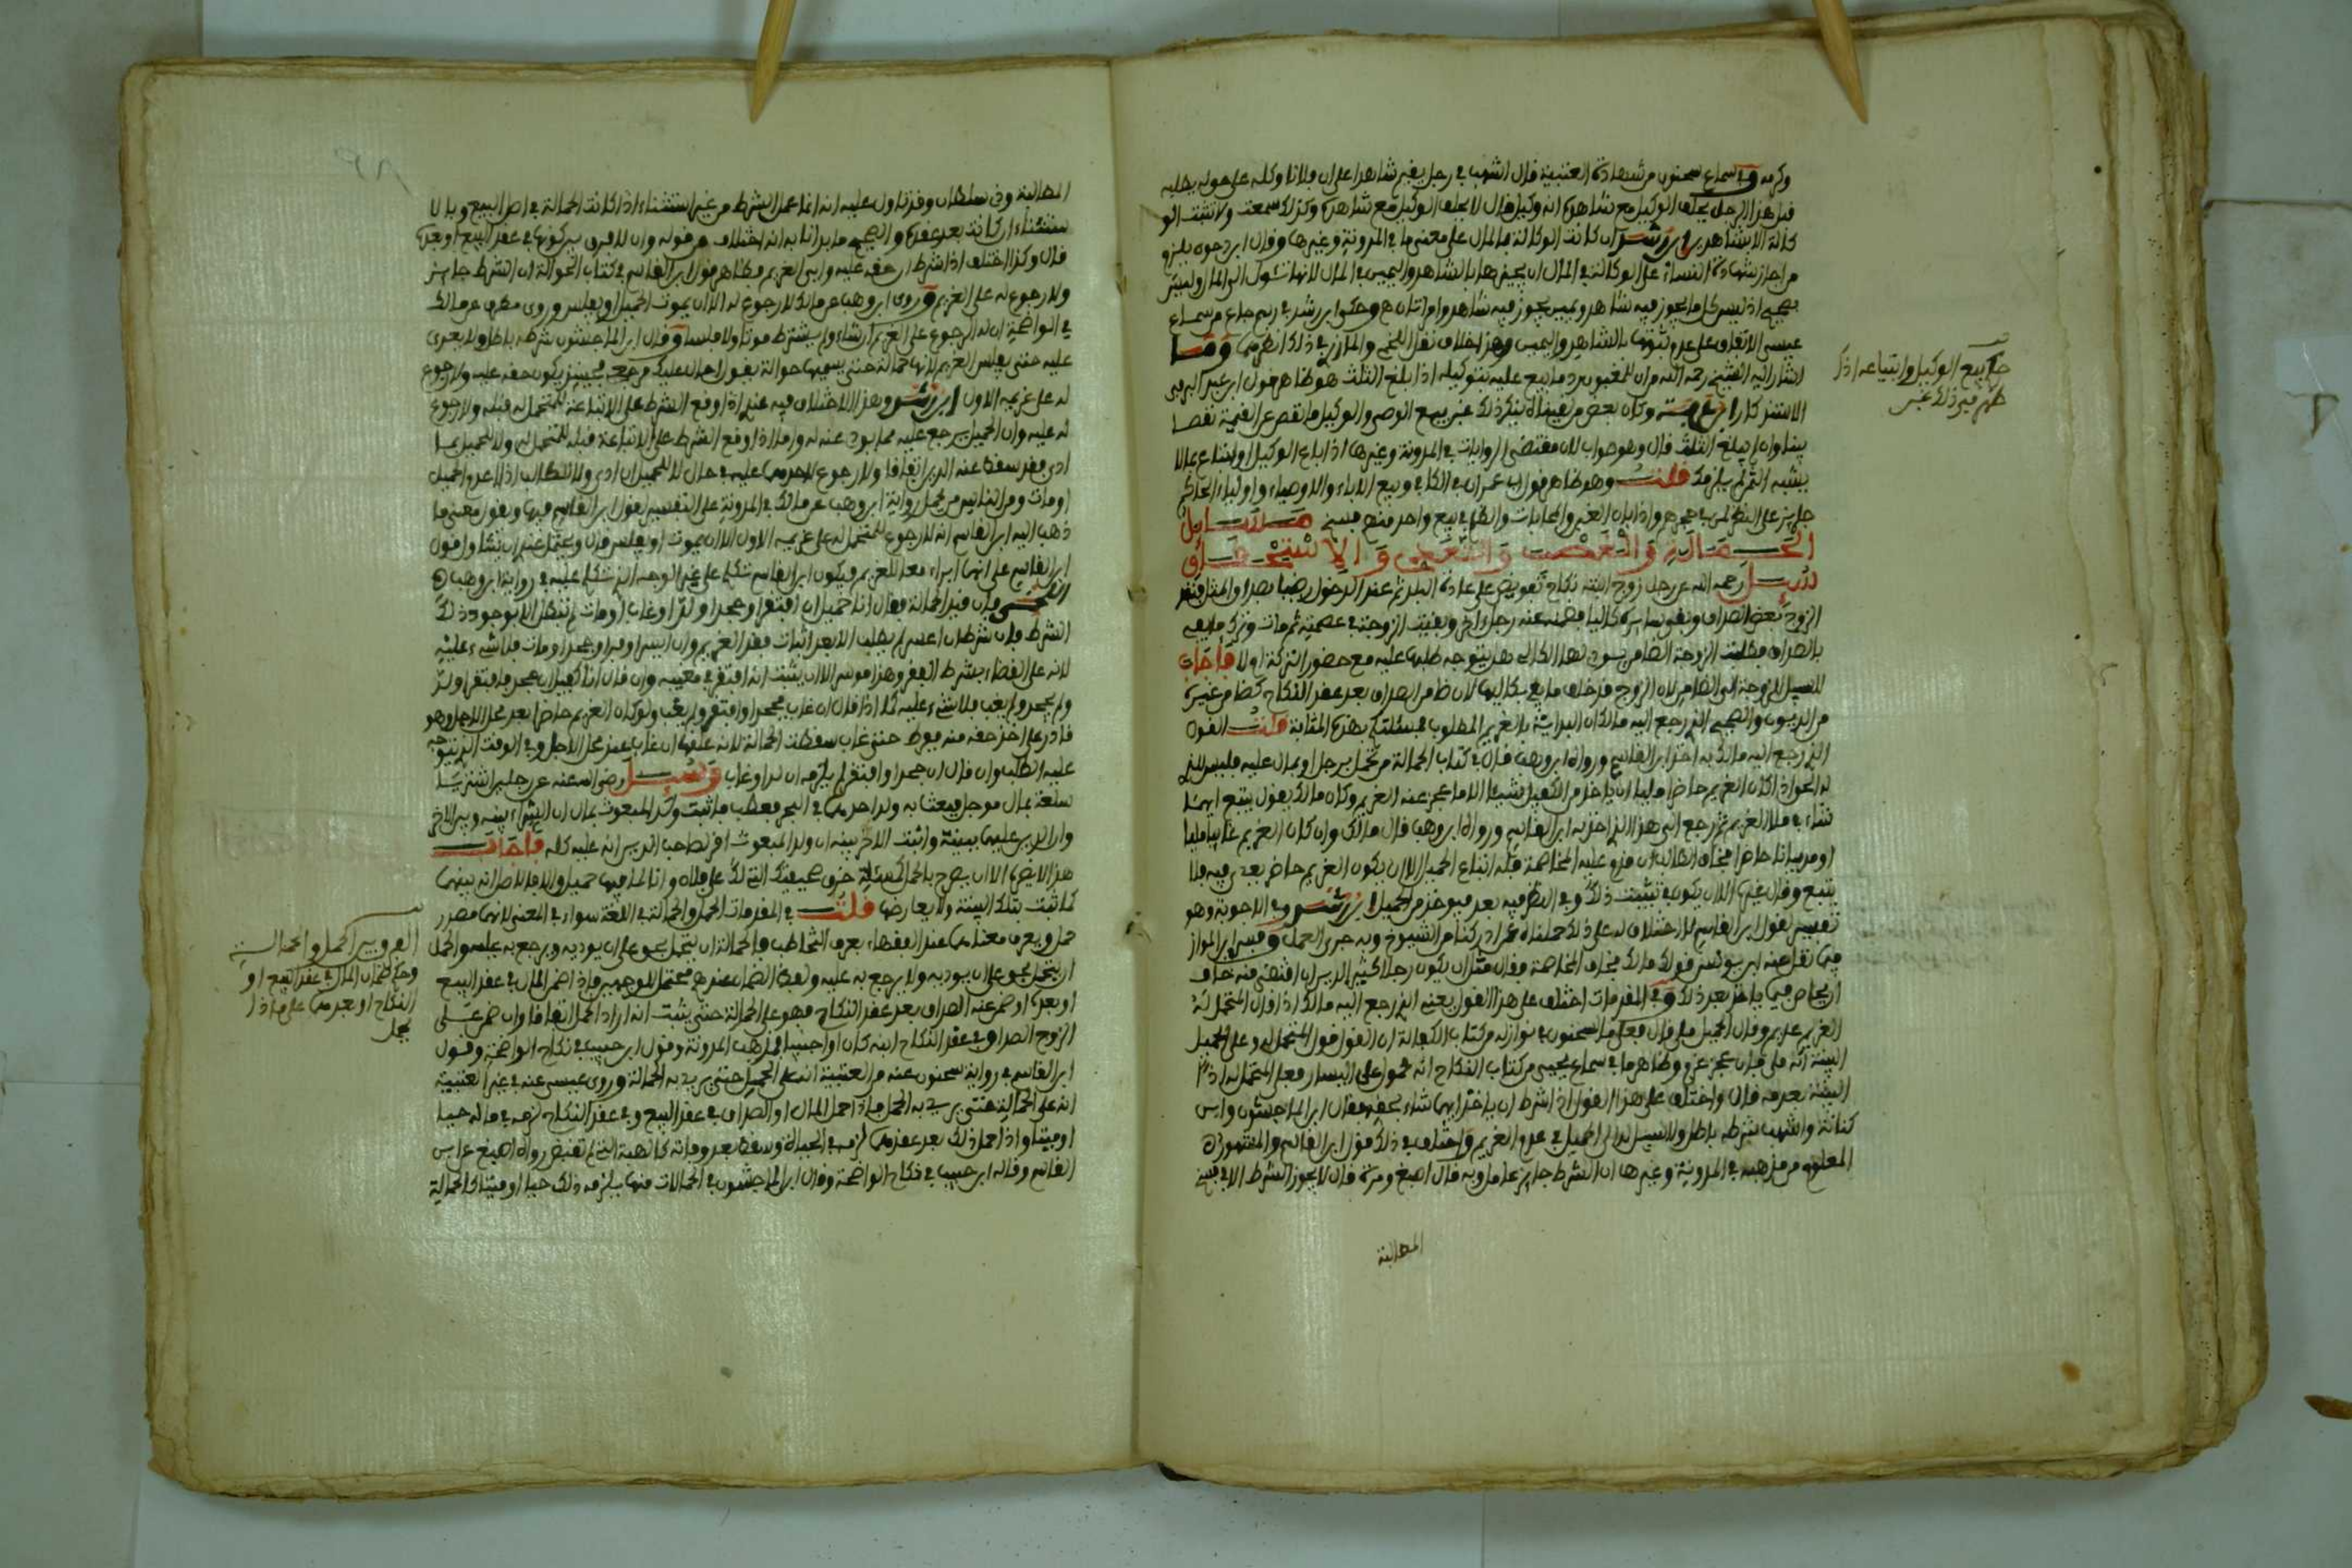 وكرمه وفي سماع سحنون من شهادة العتبية قال اشهب في رجل يقيم شاهدا على ان فلانا وكله على حق له يطلبه
قبل هذا الرجل يحلف الوكيل مع شاهده انه وكيل قال لا يحلف الوكيل مع شاهده وكذلك سمعت ولا تثبت الو
كالة الا بشاهدين ابن رشد ان كانت الوكالة بالمال على معنى ما في المدونة وغيرها وقال ابن دحون يلزم
من اجاز شهادة النساء على الوكالة في المال ان يجيزها بالشاهد واليمين في المال لانها تئول الى المال وليس
بصحيح اذ ليس كل ما يجوز فيه شاهد ويمين يجوز فيه شاهد وامراتان وحكى ابن رشد في رسم جاع من سماع
عيسى الاتفاق على عدم ثبوتها بالشاهد واليمين وهذا خلاف نقل اللخمي والمازري في ذلك انظرهما وما
اشار اليه الشيخ رحمه الله من ان المغبون يرد ما بيع عليه بتوكيله اذا بلغ الثلث هو ظاهر قول ابن عبد البر في
الاستذكار ابن عرفة وكان بعض من لقيناه ينكر ذلك عن بيع الوصي والوكيل ما نقص عن القيمة نقصا
بينا وان لم يبلغ الثلث قال وهو صواب لان مقتضى الروايات في المدونة وغيرها اذا باع الوكيل او ابتاع بما لا
يشبه الثمن لم يلزمك قلت وهو ظاهر قول ابي عمران في الكافي وبيع الاباء والاوصياء واولياء الحاكم
جايز على النظر لمن في حجرهم واذا بان الغبن والمحابات والنظر في بيع واحد منهم فسخ مسايل
الحمالة والغصب والتعدي والاستحقاق
وسئل رحمه الله عن رجل زوج ابنته نكاح تفويض على عادة البلد ثم عند الدخول رضيا بصداق المثل فنقد
الزوج بعض الصداق وبقي سايره كاليا فضمنه عنه رجل اخر وبقيت الزوجة في عصمته ثم مات وترك ما يفي
بالصداق فطلبت الزوجة الضامن بسوى لها الكالي هل يتوجه طلبها عليه مع حضور التركة اولا فاجاب
لا سبيل للزوجة الى الضامن لان الزوج قد خلف ما يفي بكاليها لان ضامن الصداق بعد عقد النكاح كضامن غيره
من الديون والصحيح الذي رجع اليه مالك ان البداية بالغريم المطلوب فمسئلتكم بهذه المثابة قلت القول
الذي رجع اليه مالك به اخذ ابن القاسم ورواه ابن وهب قال في كتاب الحمالة من تحمل برجل او بمال عليه فليس للذي
له الحق اذا كان الغريم حاضرا مليا ان ياخذ من الكفيل شيئا الا ما عجز عنه الغريم وكان مالك يقول يتبع ايهما
شاء في ملاء الغريم ثم رجع الى هذا الذي اخذ به ابن القاسم ورواه ابن وهب قال مالك وان كان الغريم غايبا مليا
او مديانا حاضرا يخاف الطالب ان قام عليه المحاصة فله اتباع الحميل الا ان يكون الغريم حاضر يعدى فيه فلا
يتبع وقال غيره الا ان يكون في تثبيت ذلك وفي النظر فيه بعد فيوخذ من الحميل ابن رشد وفي الاجوبة وهو
تفسير لقول ابن القاسم لا اختلاف له على ذلك حملناه عمن ادركنا من الشيوخ وبه جرى العمل وفسر ابن المواز
فيما نقل عنه ابن يونس قول مالك يخاف المحاصة فقال مثل ان يكون رجلا كثير الدين ان اقتضى منه خاف
ان يحاص فيما ياخذ بعد ذلك وفي المقدمات اختلف على هذا القول يعني الذي رجع اليه مالك اذا قال المتحمل له
الغريم عديم وقال الحميل ملي فقال فعلى ما لسحنون في نوازله من كتاب الكفالة ان القول قول المتحمل له وعلى الحميل
البينة انه ملي فان عجز غرم وظاهر ما في سماع يحيى من كتاب النكاح انه محمول على اليسار فعلى المتحمل له اذ
البينة بعدمه قال واختلف على هذا القول اذا شرط ان ياخذ ايهما شاء بحقه فقال ابن الماجشون وابن
كنانة واشهب شرطه باطل ولا سبيل له الى الحميل في عدم الغريم واختلف في ذلك قول ابن القاسم والمشهور ه
المعلوم من مذهبه في المدونة وغيرها ان الشرط جايز عامل وبه قال اصبغ ومرة قال لا يجوز الشرط الا في قبيح
المطالبة
حكم بيع الوكيل وابتياعه اذا
ظهر فيه ذلك غبن
المطالبة وذي سلطان وقد تاول عليه انه انما عمل الشرط من غير استثناء اذا كانت الحمالة في اصل البيع وبالا
ستثناء ان كانت بعد عقده والصحيح ما بدانا به انه اختلاف من قوله وان لا فرق بين كونها في عقد البيع او بعده
قال وكذا اختلف اذا شرط ان حقه عليه وابرا الغريم فظاهر قول ابن القاسم في كتاب الحوالة ان الشرط جايز
ولا رجوع له على الغريم وروى ابن وهب عن مالك لا رجوع له الا ان يموت الحميل او يفلس وروى مطرف عن مالك
في الواضحة ان له الرجوع على الغريم ان شاء ولم يشترط موتا ولا فلسا وقال ابن الماجشون شرطه باطل ولا يعدى
عليه حتى يفلس الغريم لانها حمالة حتى يسميها حوالة يقول احالني عليك فحينئذ يكون حقه عليه ولا رجوع
له على غريمه الاول ابن رشد وهذا الاختلاف فيه عندي اذا وقع الشرط على الاتباعة للمتحمل له قبله ولا رجوع
له عليه وان الحميل يرجع عليه بما يودي عنه له واما اذا وقع الشرط على الاتباعة قبله للمتحمل له ولا للحميل بما
ادى فقد سقط عنه الدين اتفاقا ولا رجوع لاحدهما عليه في حال لا للحميل ان ادى ولا للطالب اذا اعدم الحميل
او مات ومن الناس من يحمل رواية ابن وهب عن مالك في المدونة على التفسير لقول ابن القاسم فيها ويقول معنى ما
ذهب اليه ابن القاسم انه لا رجوع للمتحمل له على غريمه الاول الا ان يموت او يفلس قال ويحتمل عندي ان تتاول قول
ابن القاسم على انها ابراء معد للغريم ويكون ابن القاسم تكلم على غير الوجه الذي تكلم عليه في رواية ابن وهب ه
اللخمي فان قيد الحمالة فقال انا حميل ان افتقر او جحد او لد او غاب او مات لم تنتقل الا بوجود ذلك
الشرط فان شرط ان اعدم لم يطلب الا بعد اثبات فقر الغريم وان ايسر او فر او جحد او مات فلا شيء عليه
لانه على القضاء بشرط الفقر وهذا موسر الا ان يثبت انه افتقر في مغيبه وان قال انا كفيل ان جحد فافتقر او لد
ولم يجحد ولم يغب فلا شيء عليه كما اذا قال ان غاب فجحد او افتقر ولم يغب ولو كان الغريم حاضرا بعد محل الاجل وهو
قادر على اخذ حقه منه ففرط حتى غاب سقطت الحمالة لانه علقها ان غاب عند محل الاجل وفي الوقت الذي يتوجه
عليه الطلب وان قال ان جحد او افتقر لم يلزمه ان لد او غاب وسئل رضي الله عنه عن رجلين اشتريا
سلعة بمال موجل فبعثا به ولد احدهما في البحر فعطب فاثبت والد المبعوث بمال ان الشراء بينه وبين الاخر
وان الدين عليهما ببينة واثبت الاخر بينة ان ولد المبعوث اقر لصاحب الدين انه عليه كله فاجاب
هذا لا يضر الا ان يصرح بالحال كمسئلة خرق صحيفتك التي لك على فلان وانا لما فيها حميل والا فلا ضرر انه بينهما
كما ثبت بتلك البينة ولا يعارضها قلت في المقدمات الحمل والحمالة في اللغة سواء في المعنى لانهما مصدر
حمل ويعرف معناهما عند الفقهاء بعرف التخاطب فالحمالة ان يتحمل بحق على ان يوديه ويرجع به عليه والحمل
ان يتحمل بحق على ان يوديه ولا يرجع به عليه ولفظ الضمان عندهم محتمل للوجهين فاذا ضمن المال في عقد البيع
او بعده او ضمن عنه الصداق بعد عقد النكاح فهو على الحمالة حتى يثبت انه اراد الحمل اتفاقا وان ضمن عن
الزوج الصداق في عقد النكاح ابنه كان او اجنبيا فمذهب المدونة وقول ابن حبيب في نكاح الواضحة وقول
ابن القاسم في رواية سحنون عنه من العتبية انه على الحمل حتى يريد به الحمالة وروى عيسى عنه في غير العتبية
انه على الحمالة حتى يريد به الحمل فاذا حمل المال او الصداق في عقد البيع وفي عقد النكاح لزمه في ماله حيا
او ميتا واذا حمل ذلك بعد عقدهما لزمه في الحياة وسقط بعد وفاته كالهبة التي لم تقبض رواه اصبغ عن ابن
القاسم وقاله ابن حبيب في نكاح الواضحة وقال ابن الماجشون في الحمالات منها يلزمه ذلك حيا او ميتا كالحمالة
الفرق بين الحمل والحمالة
وحكم ضمان المال في عقد البيع او
النكاح او بعدهما على ماذا
يحمل